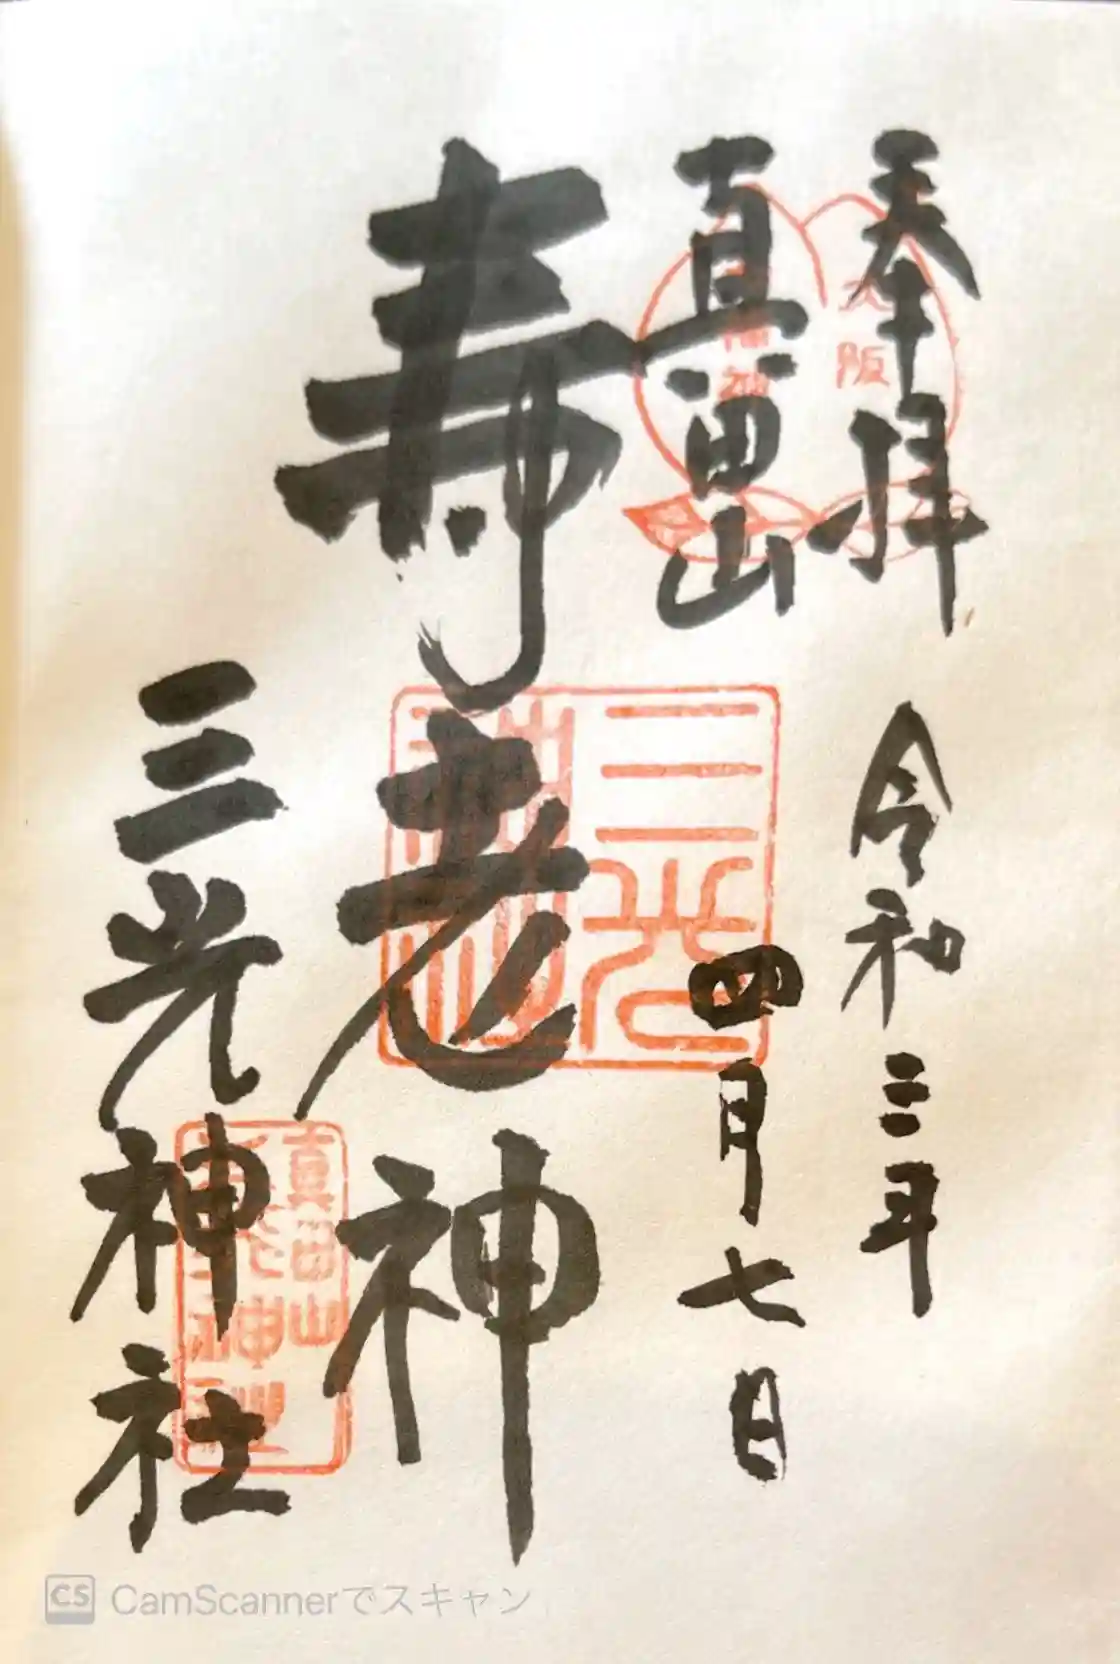 奉拝
令和三年
真田山
四月七日
寿老神
三光神社
大阪
三光神社
真田山
三光神社
CS CamScannerでスキャン